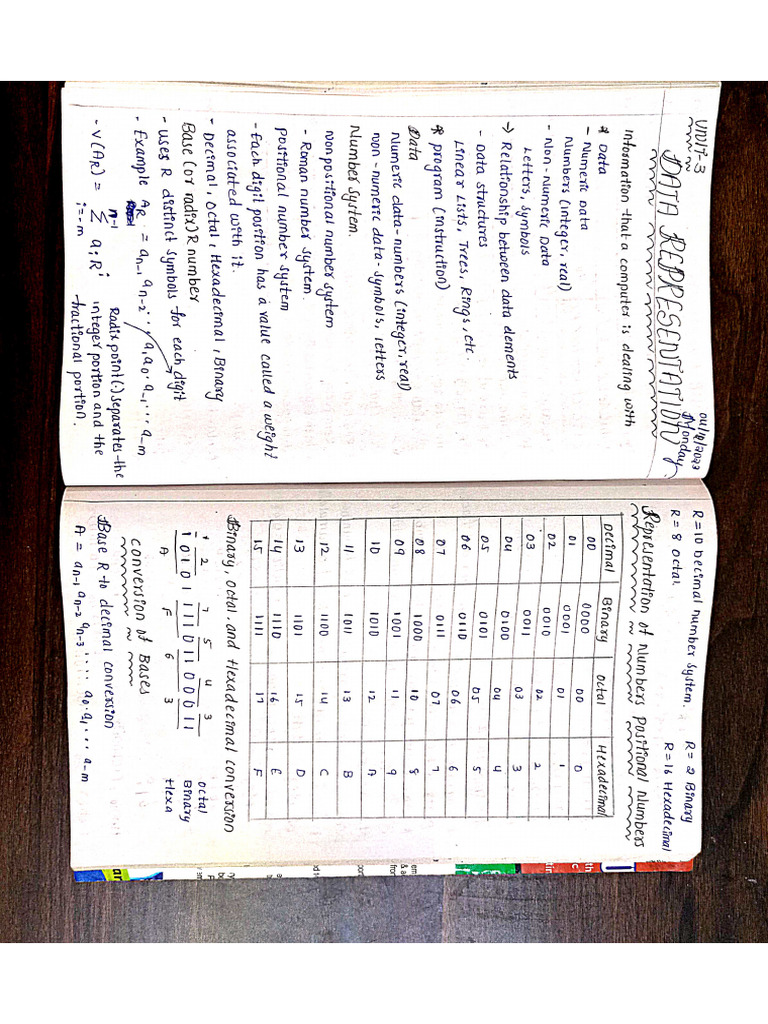 UNIT-3
04/9/2023
Monday
DATA REPRESENTATION
Information that a computer is dealing with
* Data
- Numeric Data
Numbers (integer, real)
- Non-Numeric Data
Letters, Symbols
→ Relationship between data elements
- Data structures
Linear Lists, Trees, Rings, etc.
* program (instruction)
Data
Numeric data - numbers (integer, real)
non-numeric data - symbols, letters
Number System.
nonpositional number system
- Roman number system.
positional number system
- Each digit position has a value called a weight
associated with it.
- Decimal, Octal, Hexadecimal, Binary
Base (or radix) R number
- uses R distinct symbols for each digit
- Example A_R = a_n-1 a_n-2 ... a_1 a_0 . a_-1 ... a_-m
- V(A_R) = Σ_{i=-m}^{n-1} a_i R^i
Radix point(.) separates the
integer portion and the
fractional portion.
R = 10 Decimal number system.
R = 2 Binary
R = 8 Octal
R = 16 Hexadecimal
Representation of Numbers positional Numbers
Decimal Binary Octal Hexadecimal
00 0000 00 0
01 0001 01 1
02 0010 02 2
03 0011 03 3
04 0100 04 4
05 0101 05 5
06 0110 06 6
07 0111 07 7
08 1000 10 8
09 1001 11 9
10 1010 12 A
11 1011 13 B
12 1100 14 C
13 1101 15 D
14 1110 16 E
15 1111 17 F
Binary, octal and Hexadecimal conversion
1 2 7 5 4 3 octal
1 0 1 0 1 1 1 1 0 1 1 0 0 0 1 1 Binary
A F 6 3 Hexa
conversion of Bases
Base R to decimal conversion
A = a_n-1 a_n-2 a_n-3 .... a_0 . a_1 ... a_-m